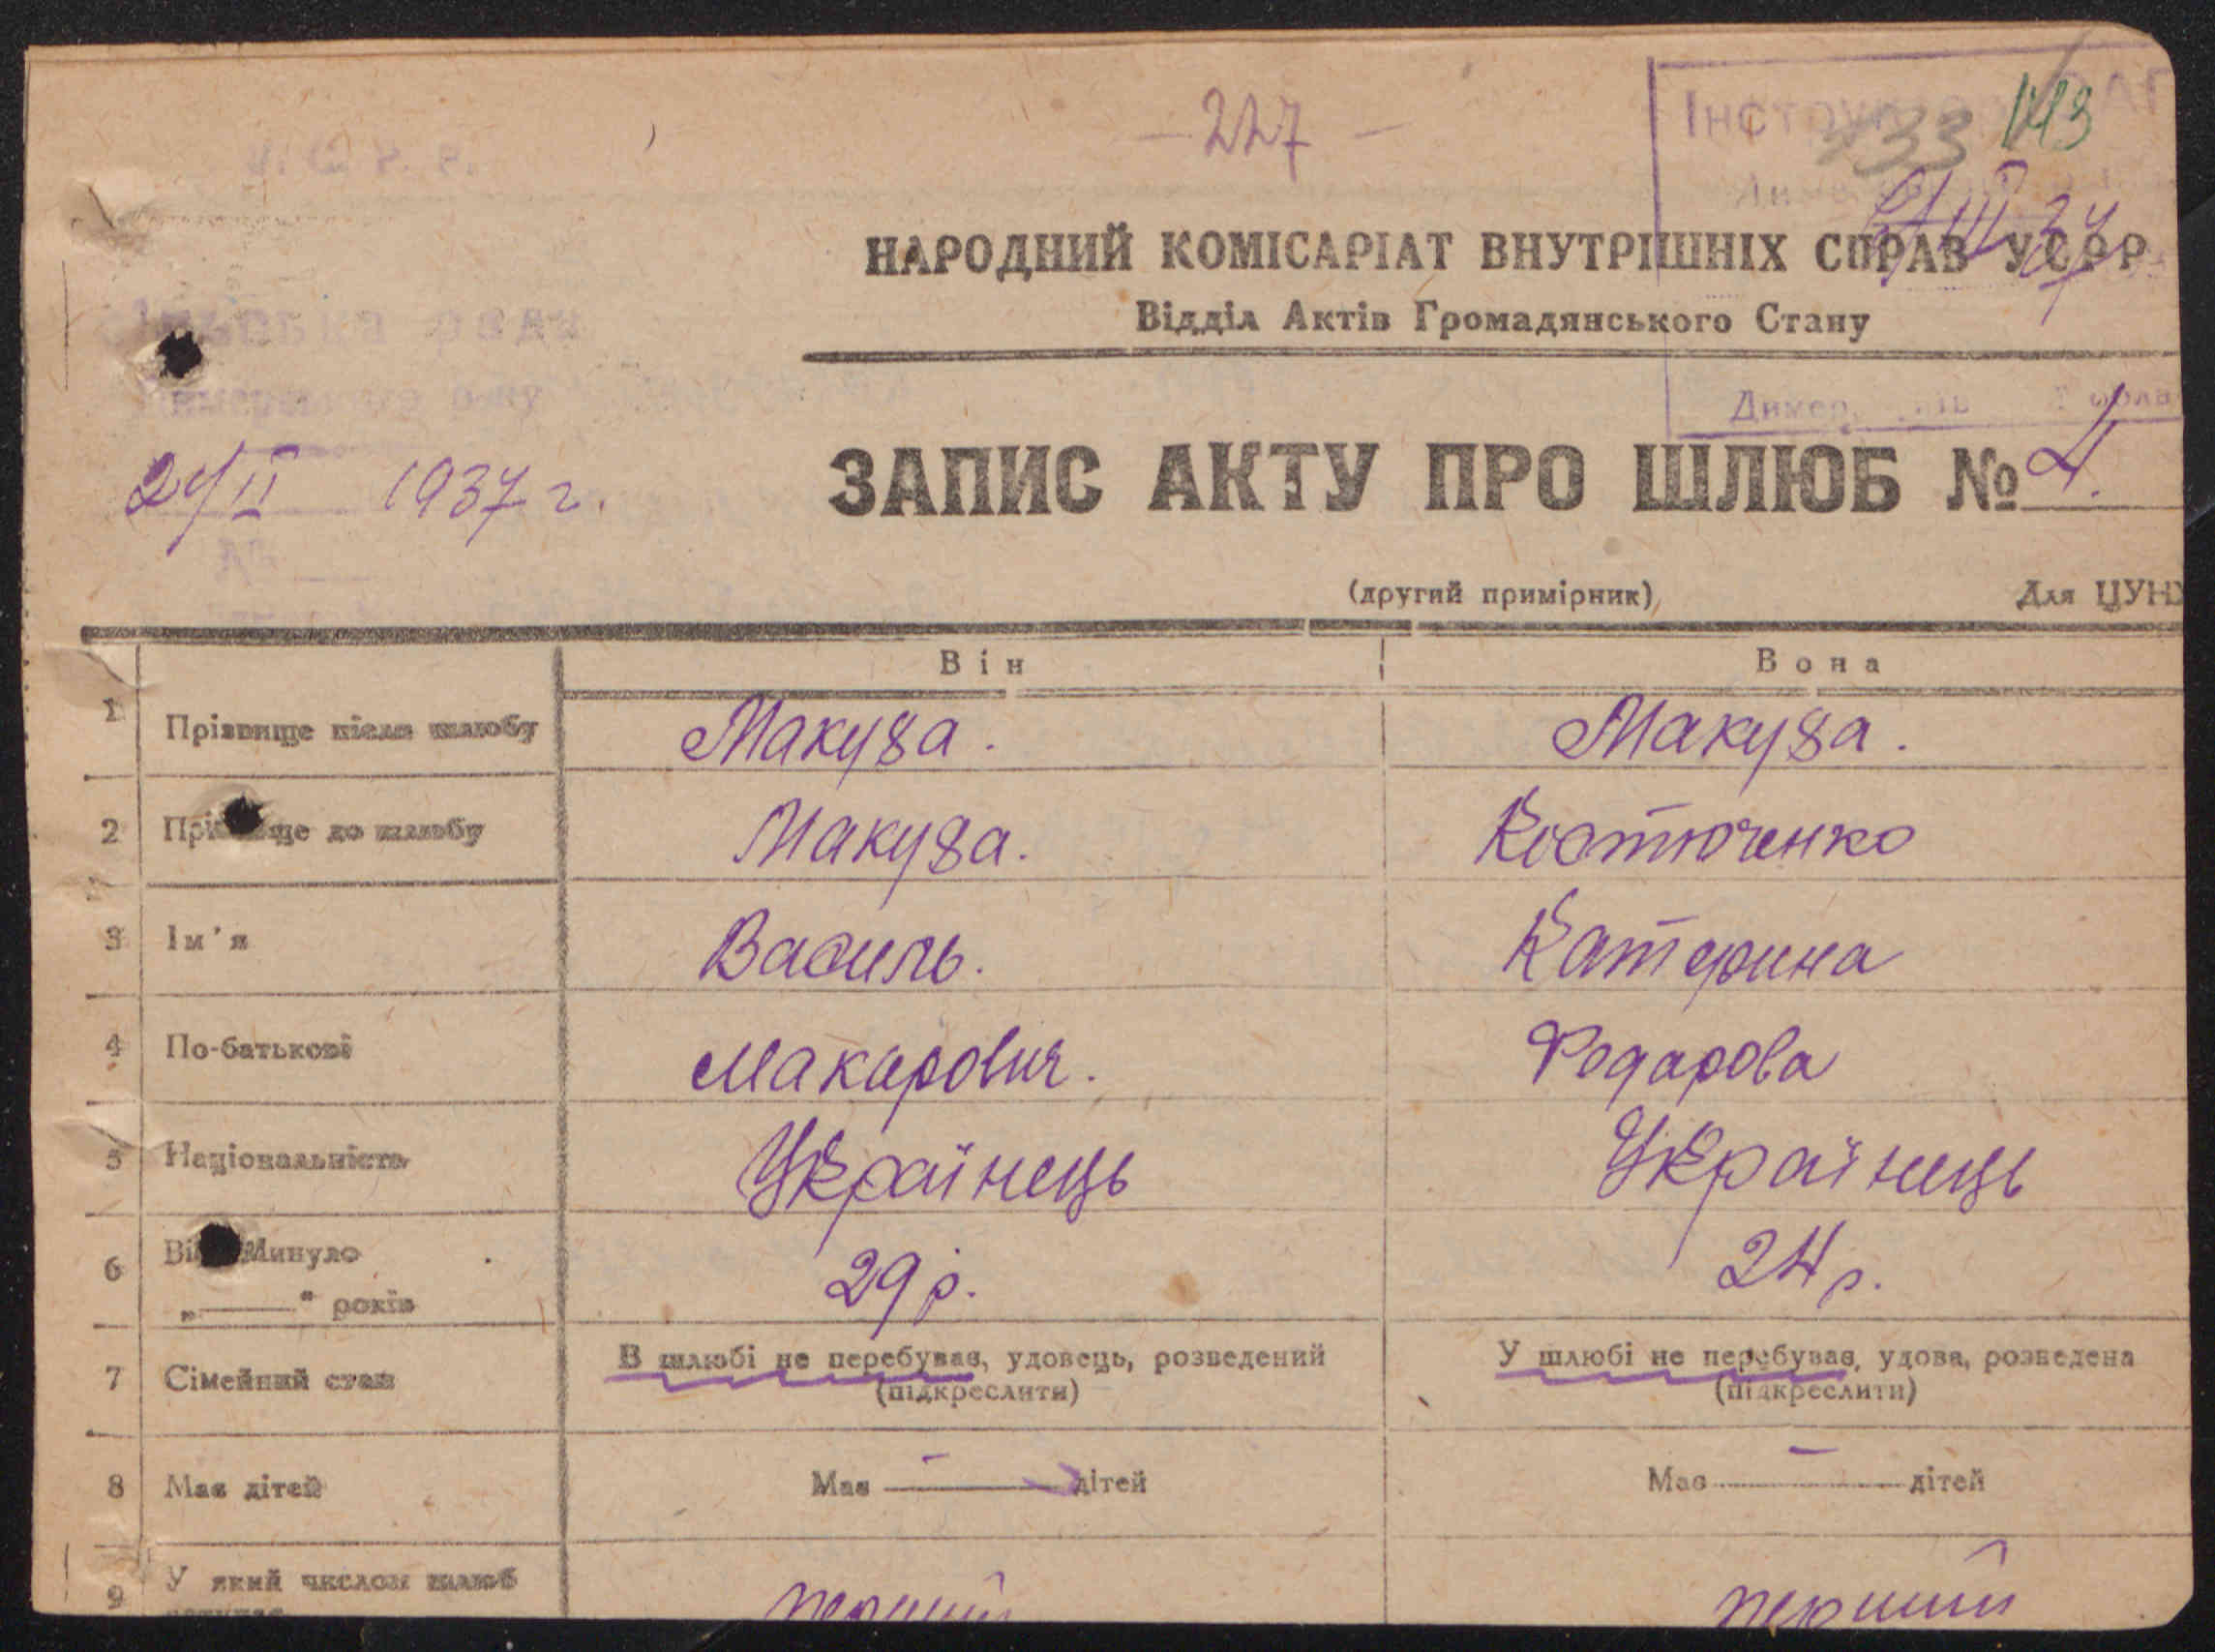 - 227 -
143
133
НАРОДНИЙ КОМІСАРІАТ ВНУТРІШНІХ СПРАВ УСРР
Відділ Актів Громадянського Стану
сільська рада
Димер
24/II 1937 г.
ЗАПИС АКТУ ПРО ШЛЮБ № 4.
(другий примірник)
Для ЦУНХ
Він Вона
1 Прізвище після шлюбу Макуха. Макуха.
2 Прізвище до шлюбу Макуха. Костюченко
3 Ім'я Василь. Катерина
4 По-батькові Макарович. Федарова
5 Національність Українець Українець
6 Вік Минуло 29 р. 24 р.
„——" років
7 Сімейний стан В шлюбі не перебував, удовець, розведений У шлюбі не перебував, удова, розведена
(підкреслити) (підкреслити)
8 Має дітей Має — дітей Має — дітей
9 У який числом шлюб перший перший